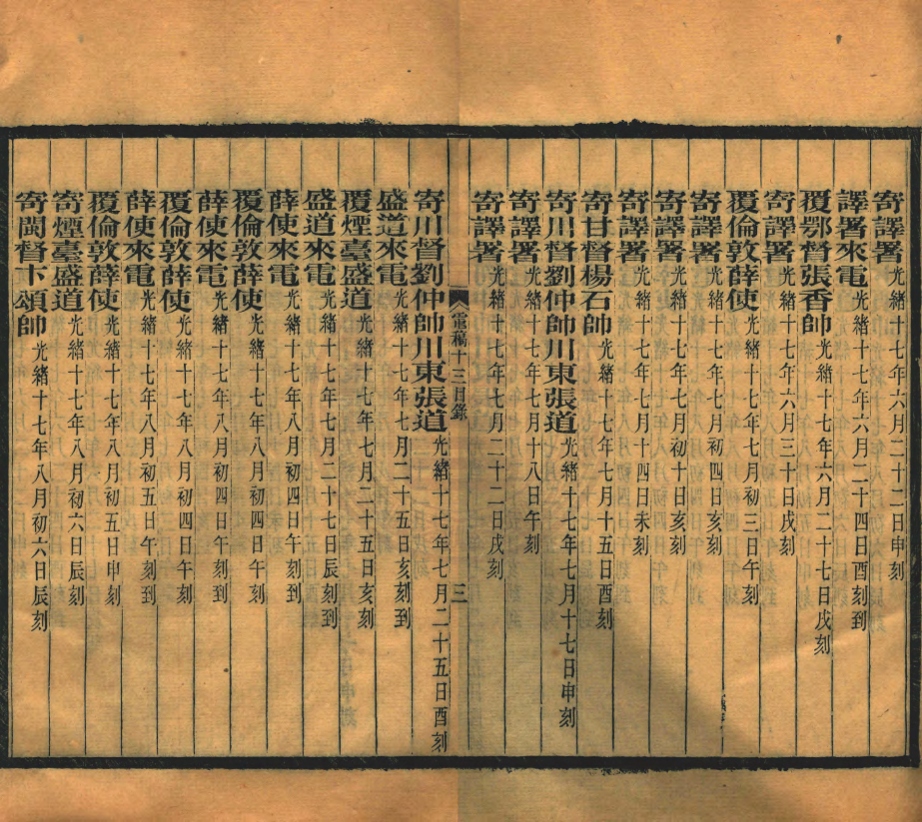 寄譯署光緒十七年六月二十二日申刻
譯署來電光緒十七年六月二十四日酉刻到
覆鄂督張香帥光緒十七年六月二十七日戌刻
寄譯署光緒十七年六月三十日戌刻
覆倫敦薛使光緒十七年七月初三日午刻
寄譯署光緒十七年七月初四日亥刻
寄譯署光緒十七年七月初十日亥刻
寄譯署光緒十七年七月十四日未刻
寄甘督楊石帥光緒十七年七月十五日酉刻
寄川督劉仲帥川東張道光緒十七年七月十七日申刻
寄譯署光緒十七年七月十八日午刻
寄譯署光緒十七年七月二十二日戌刻
電稿十三目錄 三
寄川督劉仲帥川東張道光緒十七年七月二十五日酉刻
盛道來電光緒十七年七月二十五日亥刻到
覆煙臺盛道光緒十七年七月二十五日亥刻
盛道來電光緒十七年七月二十七日辰刻到
薛使來電光緒十七年八月初四日午刻到
覆倫敦薛使光緒十七年八月初四日午刻
薛使來電光緒十七年八月初四日午刻到
覆倫敦薛使光緒十七年八月初四日午刻
薛使來電光緒十七年八月初五日午刻到
覆倫敦薛使光緒十七年八月初五日申刻
寄煙臺盛道光緒十七年八月初六日辰刻
寄閩督卞頌帥光緒十七年八月初六日辰刻